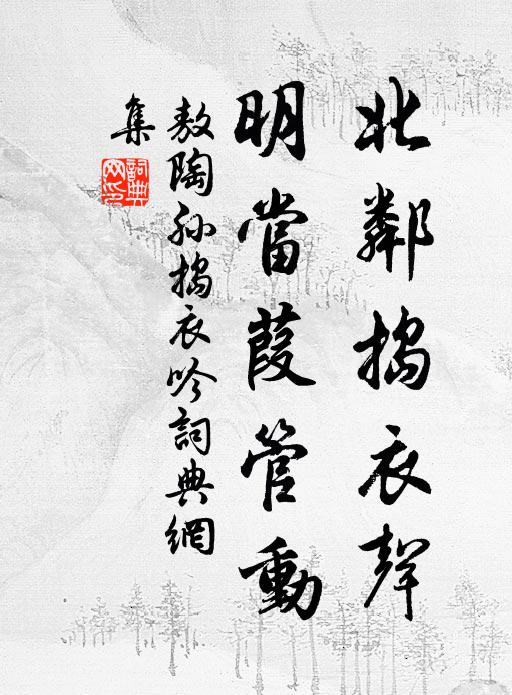 北鄰搗衣聲
明當葭管動
敖陶孫搗衣吟詞典網
集
詞典
网印